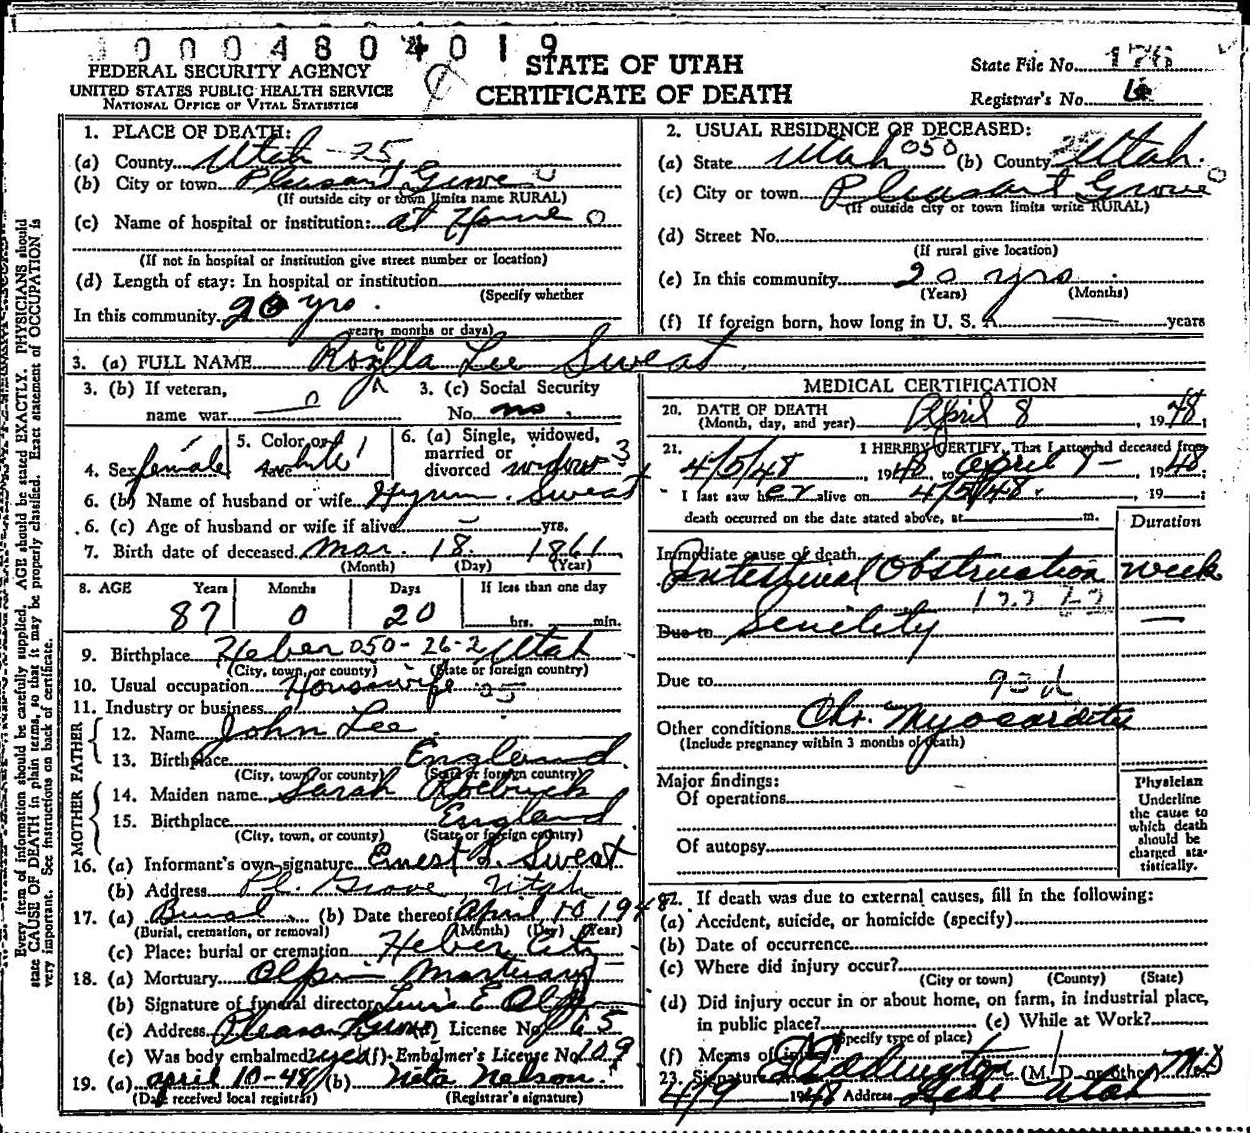 00004804019
FEDERAL SECURITY AGENCY
UNITED STATES PUBLIC HEALTH SERVICE
NATIONAL OFFICE OF VITAL STATISTICS
STATE OF UTAH
CERTIFICATE OF DEATH
State File No. 176
Registrar's No.
Every item of information should be carefully supplied. AGE should be stated EXACTLY. PHYSICIANS should
state CAUSE OF DEATH in plain terms, so that it may be properly classified. Exact statement of OCCUPATION is
very important. See instructions on back of certificate.
1. PLACE OF DEATH:
(a) County Utah - 25
(b) City or town Pleasant Grove 0
(If outside city or town limits name RURAL)
(c) Name of hospital or institution: at Home 0
(If not in hospital or institution give street number or location)
(d) Length of stay: In hospital or institution
(Specify whether
In this community 20 yrs.
years, months or days)
2. USUAL RESIDENCE OF DECEASED:
(a) State Utah 050 (b) County 25 Utah.
(c) City or town Pleasant Grove 0
(If outside city or town limits write RURAL)
(d) Street No.
(If rural give location)
(e) In this community 20 yrs.
(Years) (Months)
(f) If foreign born, how long in U. S. A. years
3. (a) FULL NAME Lee Sweat
3. (b) If veteran,
name war 0
3. (c) Social Security
No. no.
4. Sex female
5. Color or
race white 1
6. (a) Single, widowed,
married or
divorced widow 3
6. (b) Name of husband or wife Hyrum Sweat
6. (c) Age of husband or wife if alive - yrs.
7. Birth date of deceased Mar. 18 1861
(Month) (Day) (Year)
8. AGE Years Months Days If less than one day
87 0 20 hrs. min.
9. Birthplace Heber 050-26-2 Utah
(City, town, or county) (State or foreign country)
10. Usual occupation Housewife 05
11. Industry or business
FATHER
12. Name John Lee
13. Birthplace England
(City, town or county) (State or foreign country)
MOTHER
14. Maiden name Sarah Roebuck
15. Birthplace England
(City, town, or county) (State or foreign country)
16. (a) Informant's own signature Ernest L. Sweat
(b) Address Pl. Grove Utah
17. (a) Burial (b) Date thereof April 10 1948
(Burial, cremation, or removal) (Month) (Day) (Year)
(c) Place: burial or cremation Heber City
18. (a) Mortuary Olpin Mortuary
(b) Signature of funeral director E Olpin
(c) Address Pleasant Grove (d) License No. 65
(e) Was body embalmed? yes (f) Embalmer's License No. 109
19. (a) April 10-48 (b) Neta Nelson.
(Date received local registrar) (Registrar's signature)
MEDICAL CERTIFICATION
20. DATE OF DEATH
(Month, day, and year) April 8, 1948
21. I HEREBY CERTIFY, That I attended deceased from
4/5/48, 1948, to April 8-, 1948
I last saw her alive on 4/5/48, 19 ;
death occurred on the date stated above, at m.
Duration
Immediate cause of death
Intestinal Obstruction week
Due to Senility -
Due to
93d
Other conditions Chr. Myocarditis
(Include pregnancy within 3 months of death)
Major findings:
Of operations
Of autopsy
Physician
Underline
the cause to
which death
should be
charged sta-
tistically.
22. If death was due to external causes, fill in the following:
(a) Accident, suicide, or homicide (specify)
(b) Date of occurrence
(c) Where did injury occur?
(City or town) (County) (State)
(d) Did injury occur in or about home, on farm, in industrial place,
in public place? (e) While at Work?
(Specify type of place)
(f) Means of injury
23. Signature Eddington (M. D. or other) M.D
4/9 1948 Address Lehi Utah